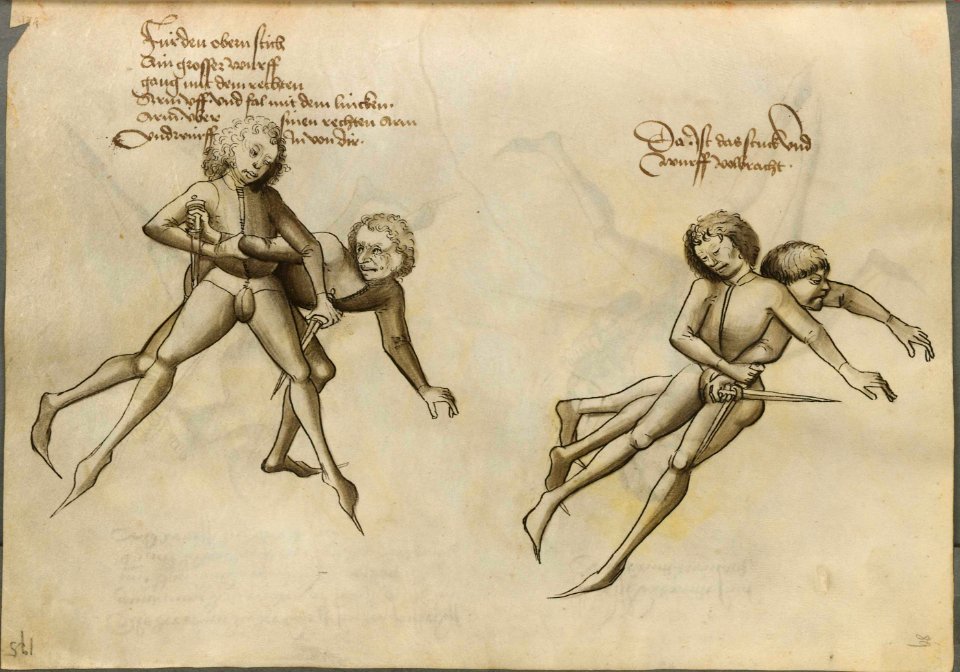 Für den obern stich
Ain grosser wurff
gang mit dem rechten
Arm vff vnd fal mit dem lincken
Arm über sinen rechten Arm
Vnd würff In von dir.
Da ist das stuck vnd
wurff volbracht.